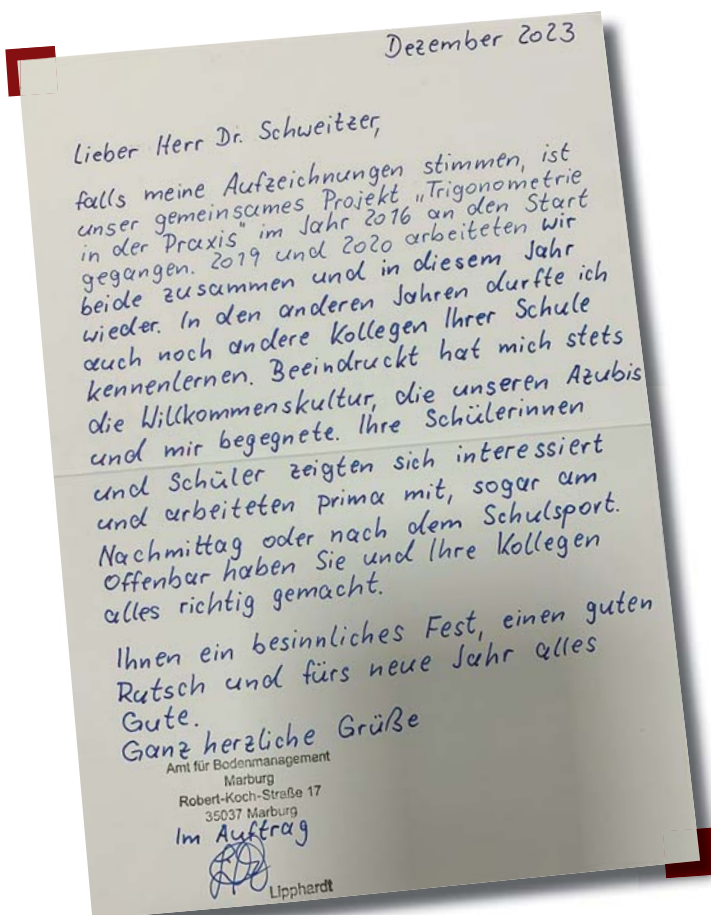 Dezember 2023
Lieber Herr Dr. Schweitzer,
falls meine Aufzeichnungen stimmen, ist
unser gemeinsames Projekt „Trigonometrie
in der Praxis" im Jahr 2016 an den Start
gegangen. 2019 und 2020 arbeiteten wir
beide zusammen und in diesem Jahr
wieder. In den anderen Jahren durfte ich
auch noch andere Kollegen Ihrer Schule
kennenlernen. Beeindruckt hat mich stets
die Willkommenskultur, die unseren Azubis
und mir begegnete. Ihre Schülerinnen
und Schüler zeigten sich interessiert
und arbeiteten prima mit, sogar am
Nachmittag oder nach dem Schulsport.
Offenbar haben Sie und Ihre Kollegen
alles richtig gemacht.
Ihnen ein besinnliches Fest, einen guten
Rutsch und fürs neue Jahr alles
Gute.
Ganz herzliche Grüße
Amt für Bodenmanagement
Marburg
Robert-Koch-Straße 17
35037 Marburg
Im Auftrag
Lipphardt